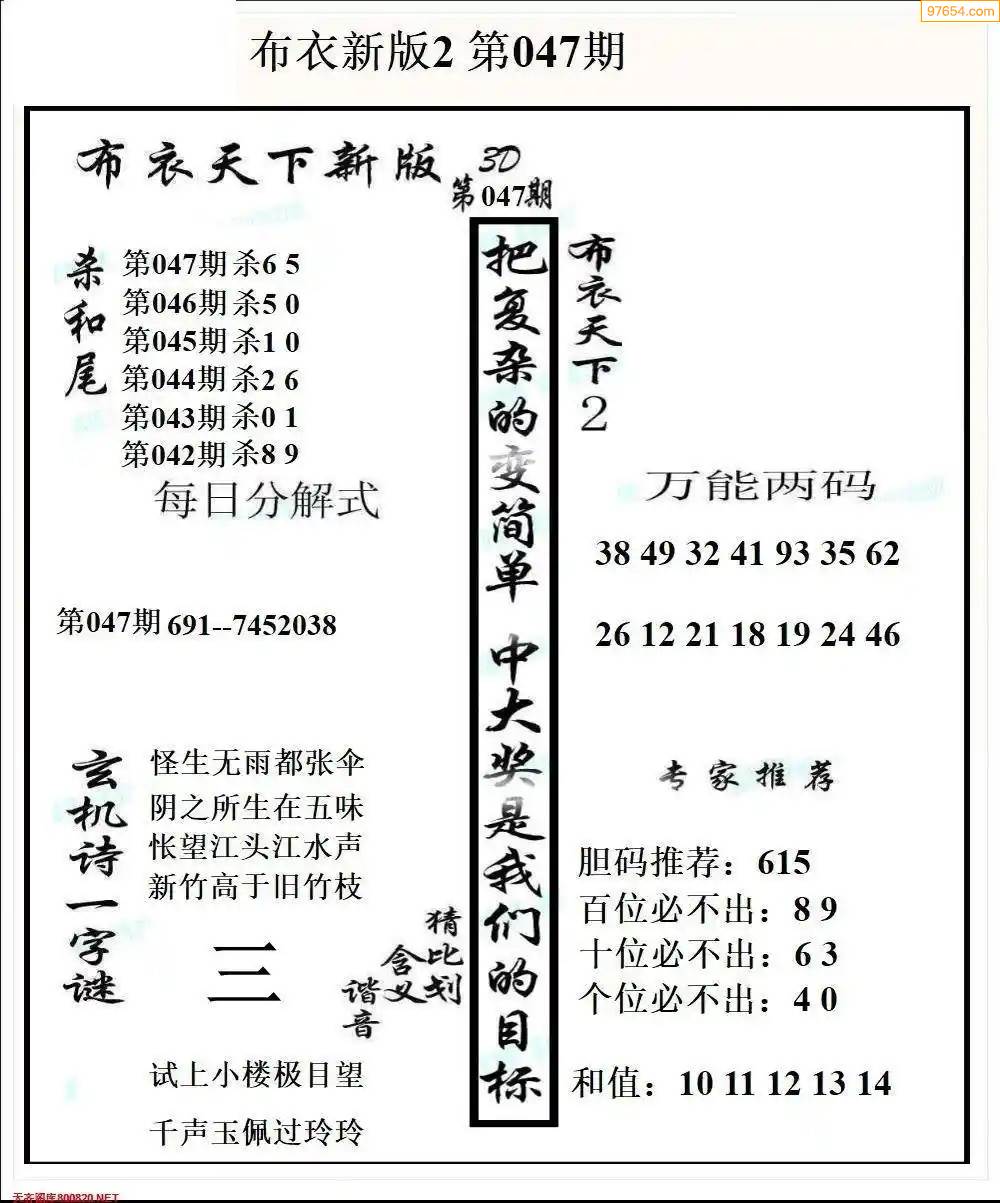 97654.com
布衣新版2 第047期
布衣天下新版
3D
第047期
杀和尾
第047期 杀6 5
第046期 杀5 0
第045期 杀1 0
第044期 杀2 6
第043期 杀0 1
第042期 杀8 9
每日分解式
第047期 691--7452038
玄机诗一字谜
怪生无雨都张伞
阴之所生在五味
怅望江头江水声
新竹高于旧竹枝
三
猜比划
含义
谐音
试上小楼极目望
千声玉佩过玲玲
把复杂的变简单 中大奖是我们的目标
布衣天下2
万能两码
38 49 32 41 93 35 62
26 12 21 18 19 24 46
专家推荐
胆码推荐：615
百位必不出：8 9
十位必不出：6 3
个位必不出：4 0
和值：10 11 12 13 14
800820.NET